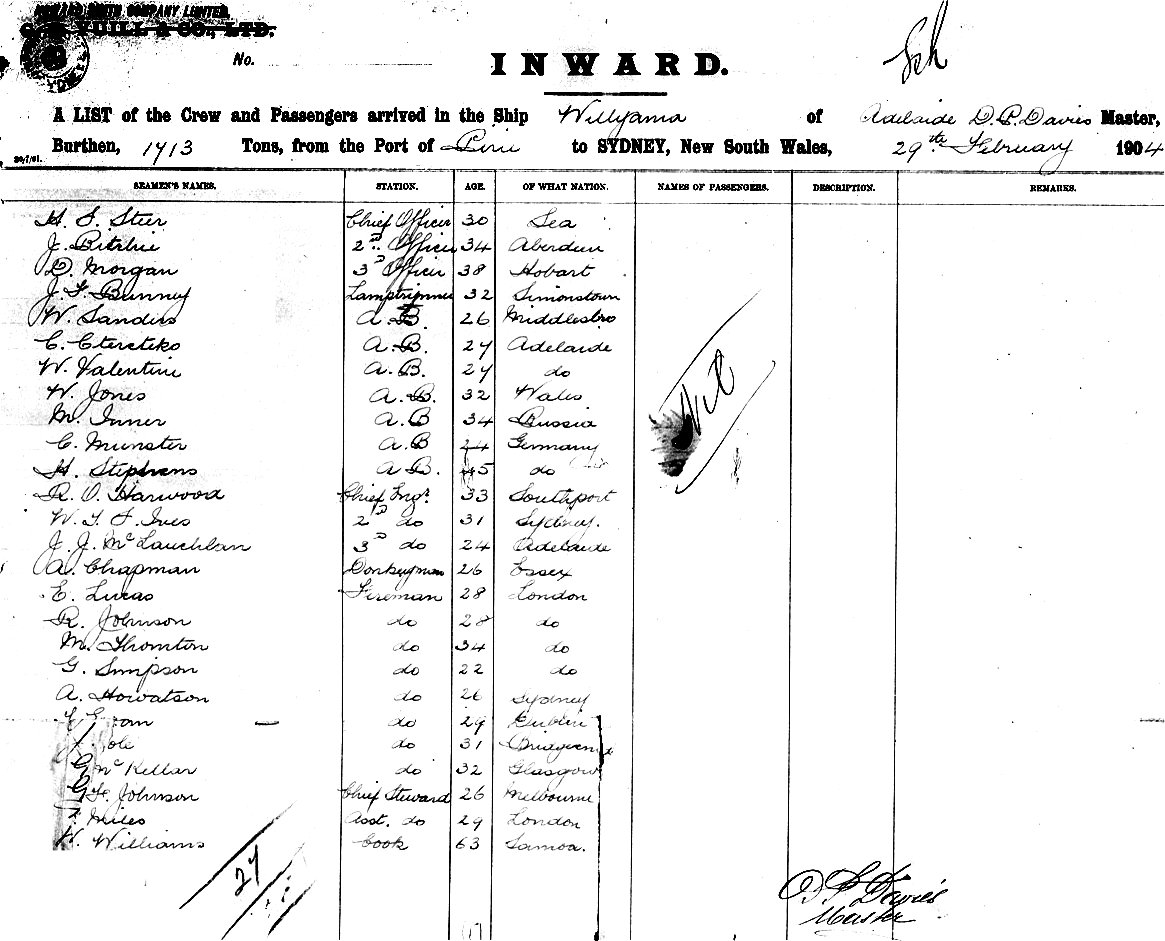 HOWARD SMITH COMPANY LIMITED.
YUILL & CO., LTD.
No.
INWARD.
A LIST of the Crew and Passengers arrived in the Ship Willyama of Adelaide D.P. Davies Master,
Burthen, 1713 Tons, from the Port of Pirie to SYDNEY, New South Wales, 29th February 1904
SEAMEN'S NAMES. STATION. AGE. OF WHAT NATION. NAMES OF PASSENGERS. DESCRIPTION. REMARKS.
Chief Officer 30 Sea
J. Ritchie 2nd Officer 34 Aberdeen
D. Morgan 3D Officer 38 Hobart
J. F. Bunney Lamptrimmer 32 Simonstown
W. Sanders A.B. 26 Middlesbro
C. A.B. 27 Adelaide
W. Valentine A.B. 27 do
W. Jones A.B. 32 Wales
M. A.B 34 Russia
C. Munster A.B 24 Germany
H. Stephens A B. 45 do
R. O. Harwood Chief Engr. 33 Southport
W. T. F. Ives 2D do 31 Sydney.
J. J. McLauchlan 3D do 24 Adelaide
A. Chapman Donkeyman 26 Essex
E. Lucas Fireman 28 London
R. Johnson do 28 do
M. Thornton do 34 do
G. Simpson do 22 do
A. Howatson do 26 Sydney
do 29 Dublin
do 31
McKellar do 32 Glasgow
Johnson Chief Steward 26 Melbourne
Miles Asst. do 29 London
H. Williams Cook 63 Samoa.
Nil
27
D P Davies
Master